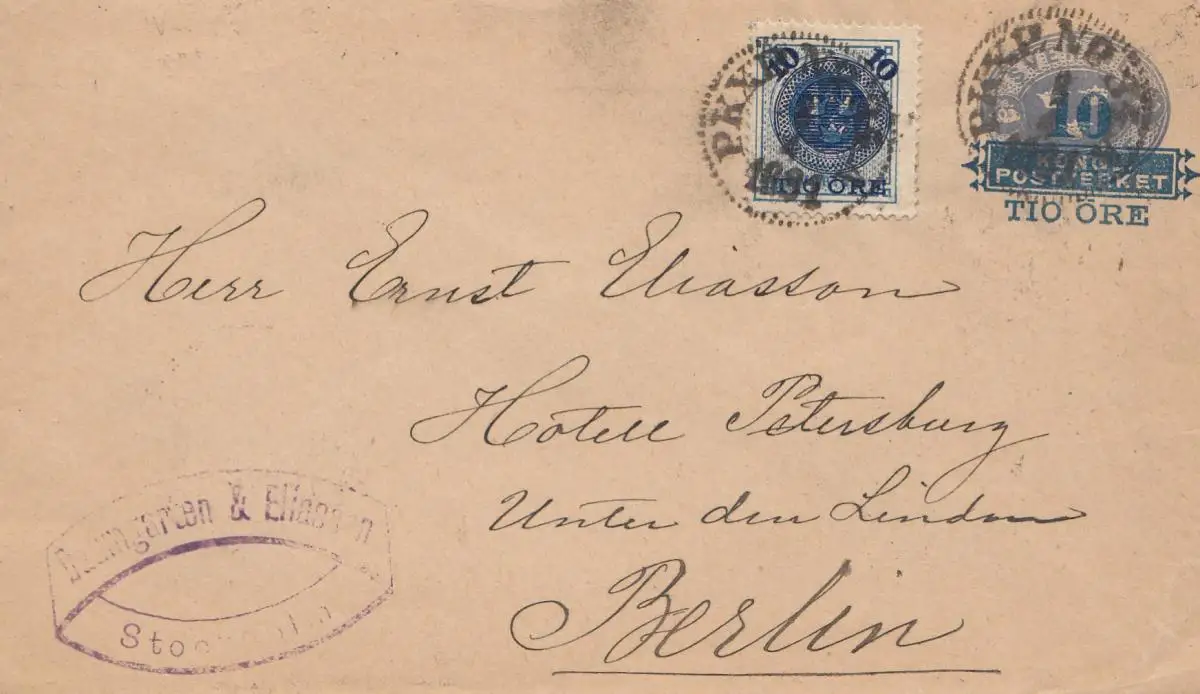 10 10
TIO ÖRE
PKXP No
189
PKXP No
10
KONGL
POSTVERKET
TIO ÖRE
Herr Ernst Eliasson
Hotell Petersburg
Unter den Linden
Berlin
Baumgarten & Eliasson
Stockholm